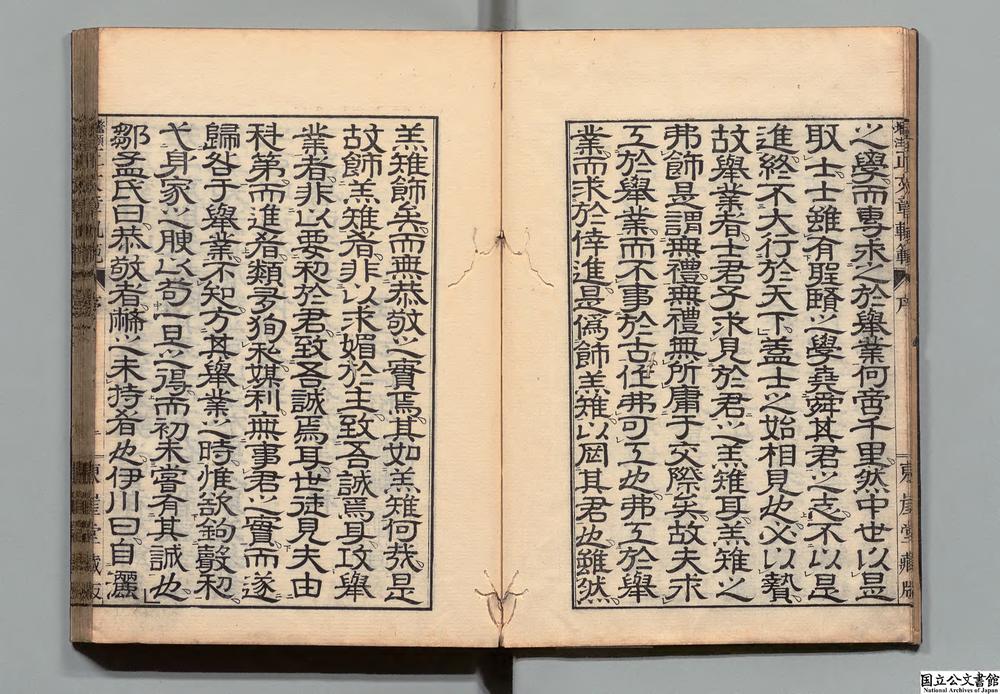 正文章軌範
序
東崖堂藏版
之學而專求之於舉業何啻千里然中世以是
取士士雖有聖賢之學堯舜其君之志不以是
進終不大行於天下蓋士之始相見也必以贄
故舉業者士君子求見於君之羔雉耳羔雉之
弗飾是謂無禮無禮無所庸于交際矣故夫求
工於舉業而不事於古作弗可工也弗工於舉
業而求於倖進是偽飾羔雉以罔其君也雖然
羔雉飾矣而無恭敬之實焉其如羔雉何哉是
故飾羔雉者非以求媚於主致吾誠焉耳攻舉
業者非以要利於君致吾誠焉耳世徒見夫由
科第而進者類多徇私媒利無事君之實而遂
歸咎于舉業不知方其舉業之時惟欲鉤聲利
弋身家之腴以苟一旦之得而初未嘗有其誠也
鄒孟氏曰恭敬者幣之未持者也伊川曰自灑
国立公文書館
National Archives of Japan